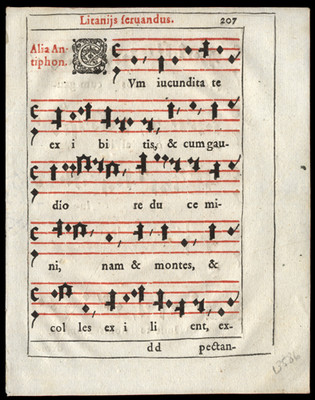 Litanijs ſeruandus. 207
Alia An-
tiphon.
CVm iucundita te
ex i bi tis, & cum gau-
dio re du ce mi-
ni, nam & montes, &
col les ex i li ent, ex-
dd pectan-